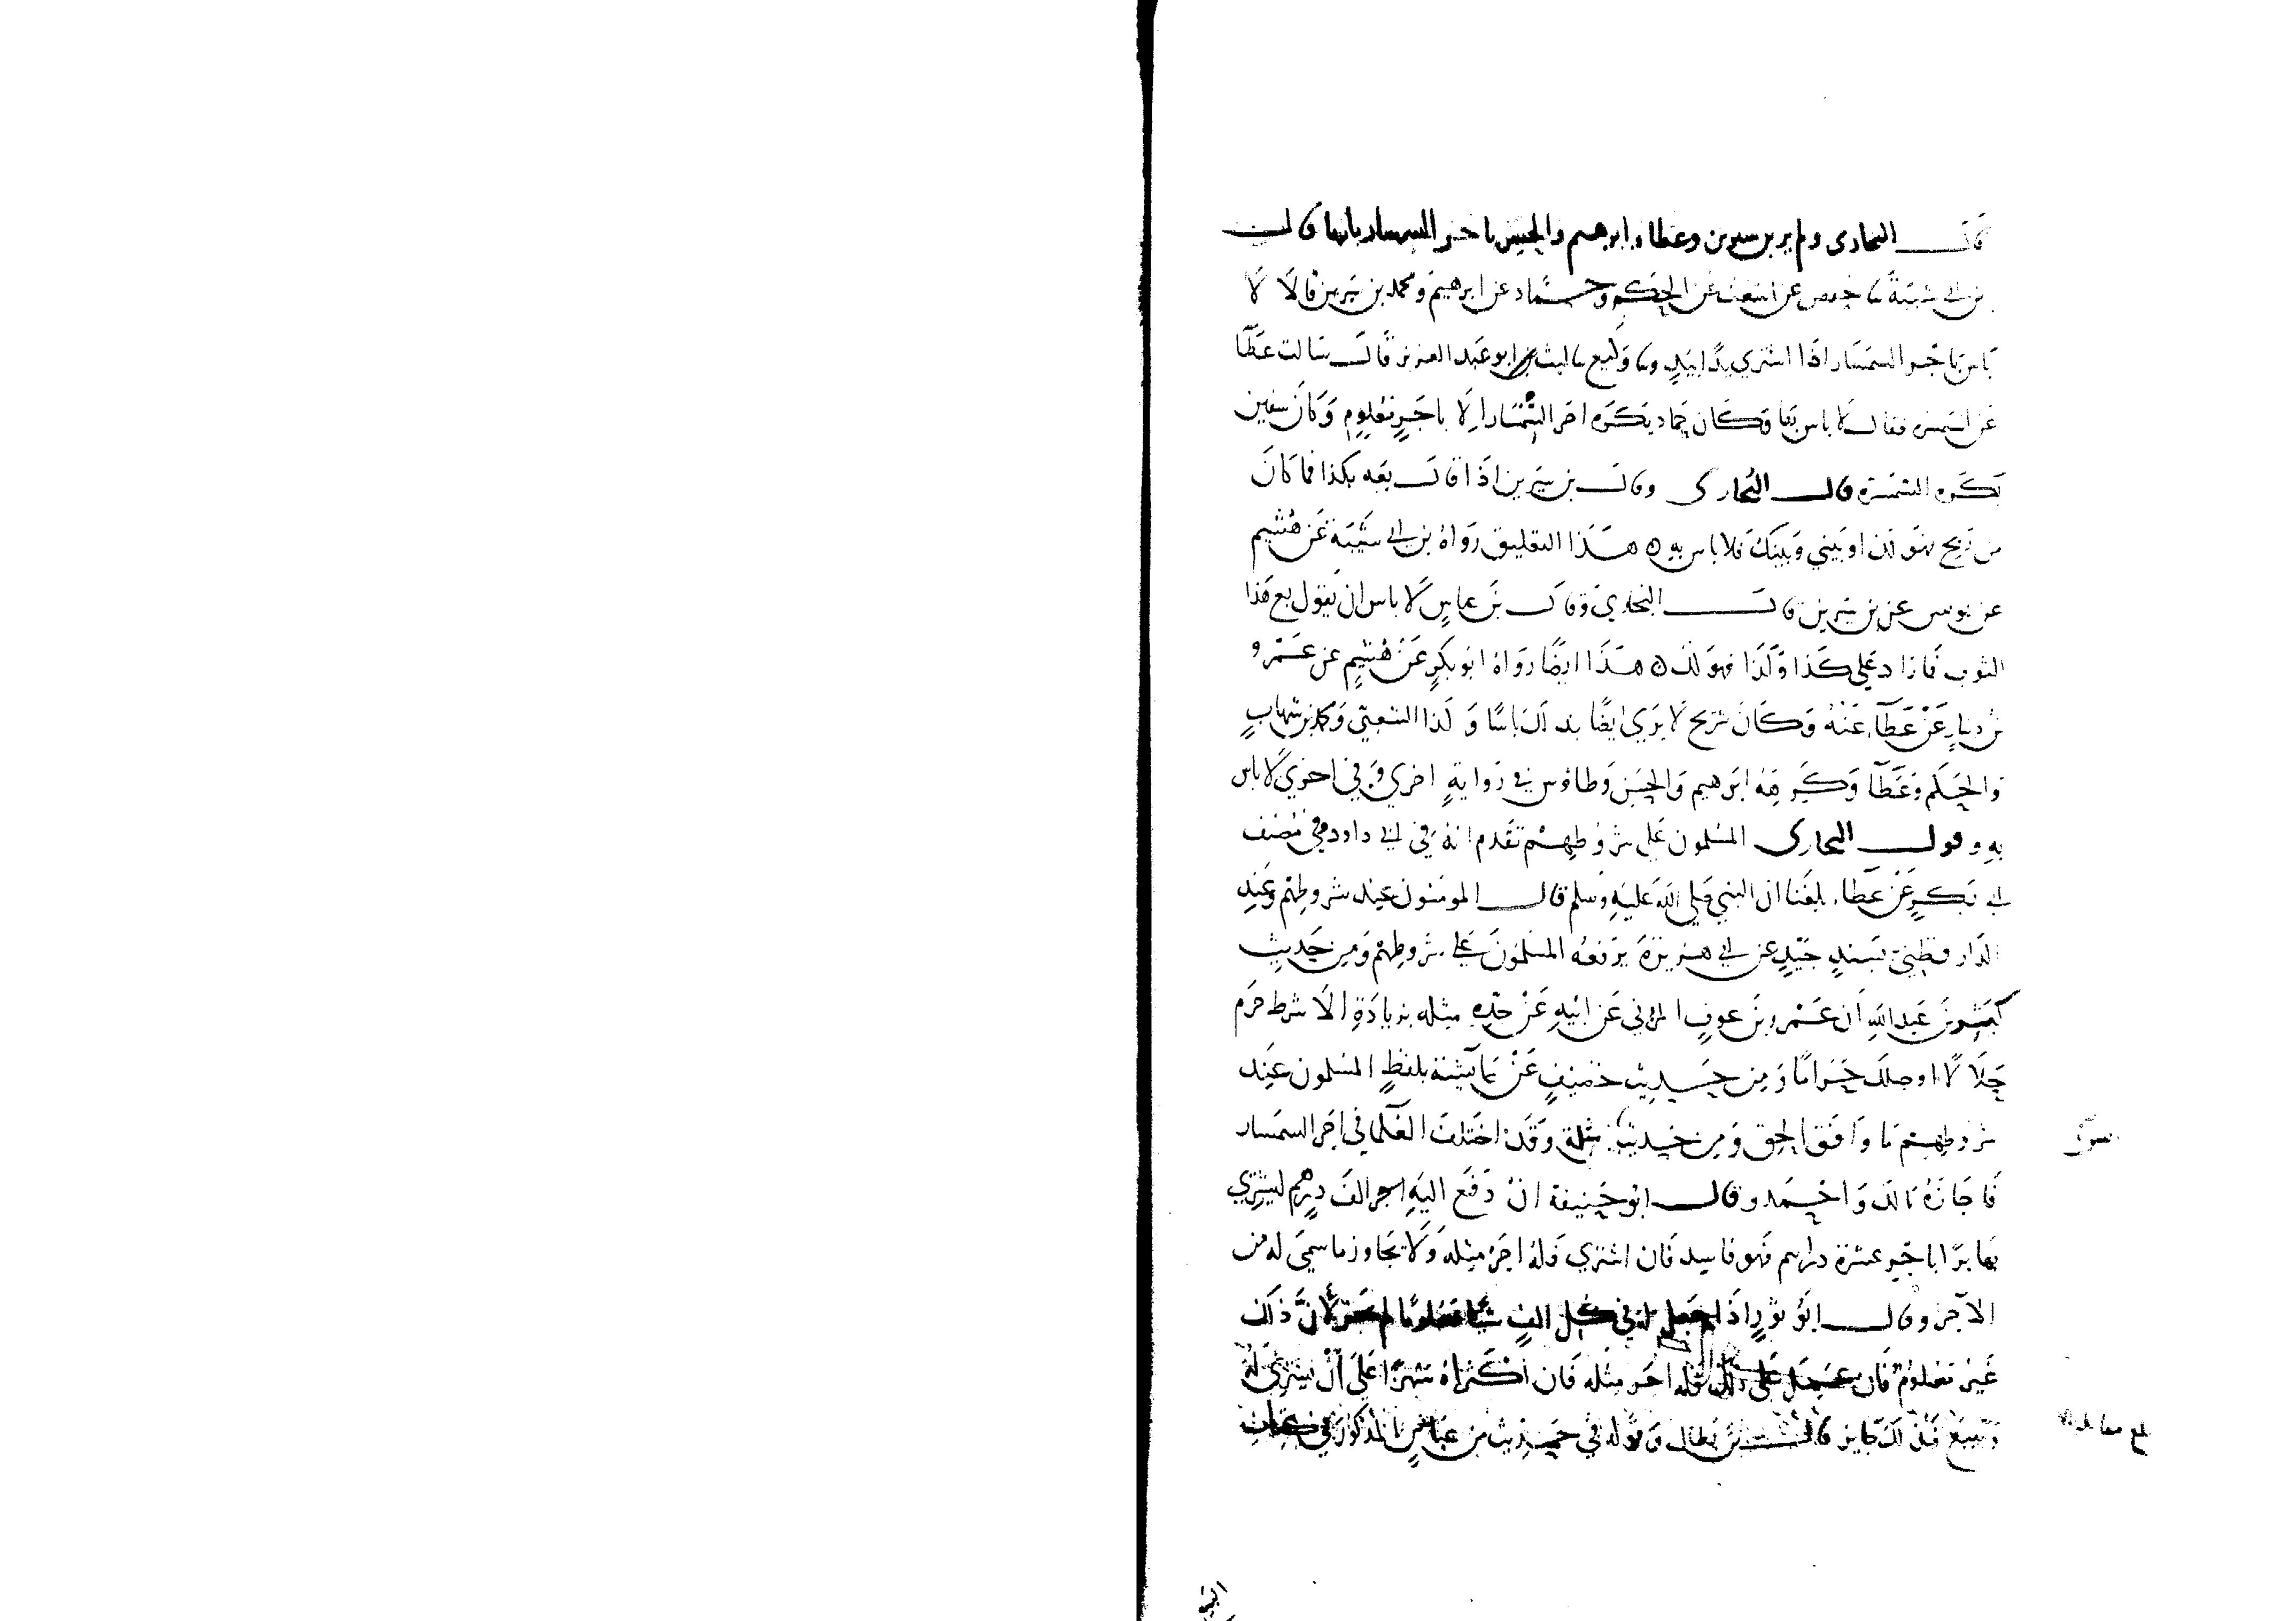 قال البخاري ولم ير بن سيرين وعطا وابرهيم والحسن باجر السمسار باسا قال
بن ابي شيبة ثنا حفص عن اشعث عن الحكم وحماد عن ابرهيم ومحمد بن سيرين قالا لا
باس باجر السمسار اذا اشتري يدا بيد وثنا وكيع ثنا ليث ابو عبد العزيز قال سالت عطا
عن السمسرة فقال لا باس بها وكان حماد يكره اجر السمسار الا باجر معلوم وكان سفين
يكره السمسرة قال البخاري وقال بن سيرين اذا قال بعه بكذا فما كان
من ربح فهو لك او بيني وبينك فلا باس به هذا التعليق رواه بن ابي شيبة عن هشيم
عن يونس عن بن سيرين قال البخاري وقال بن عباس لا باس ان يقول بع هذا
الثوب فما زاد علي كذا وكذا فهو لك هذا ايضا رواه ابو بكر عن هشيم عن عمرو
بن دينار عن عطاء عنه وكان شريح لا يري ايضا بذلك باسا وكذا الشعبي ومحمد بن شهاب
والحكم وعطا وكرهه ابرهيم والحسن وطاوس في رواية اخري وفي اخري لا باس
به وقول البخاري المسلمون علي شروطهم تقدم انه في ابي داود وفي مصنف
ابي بكر عن عطاء بلغنا ان النبي صلي الله عليه وسلم قال المومنون عند شروطهم وعند
الدارقطني بسند جيد عن ابي هريرة يرفعه المسلمون علي شروطهم ومن حديث
كثير بن عبد الله ان عمرو بن عوف المزني عن ابيه عن جده مثله بزيادة الا شرط حرم
حلالا او حلل حراما ومن حديث خصيف عن عائشة بلفظ المسلمون عند
شروطهم ما وافق الحق ومن حديث مثله وقد اختلف العلما في اجر السمسار
فاجازه مالك واحمد وقال ابو حنيفة ان دفع اليه الف درهم ليشتري
بها بزا باجر عشرة دراهم فهو فاسد فان اشتري فله اجر مثله ولا يجاوز ما سمي له من
الاجر وقال ابو ثور اذا جعل له في كل الف شيا معلوما لم يجز لان ذلك
غير معلوم فان عمل علي ذلك فله اجر مثله فان اكتراه شهرا علي ان يشتري له
ويبيع فذلك جايز قال بن بطال وقوله في حديث بن عباس المذكور في
انس
بلغ مقابله